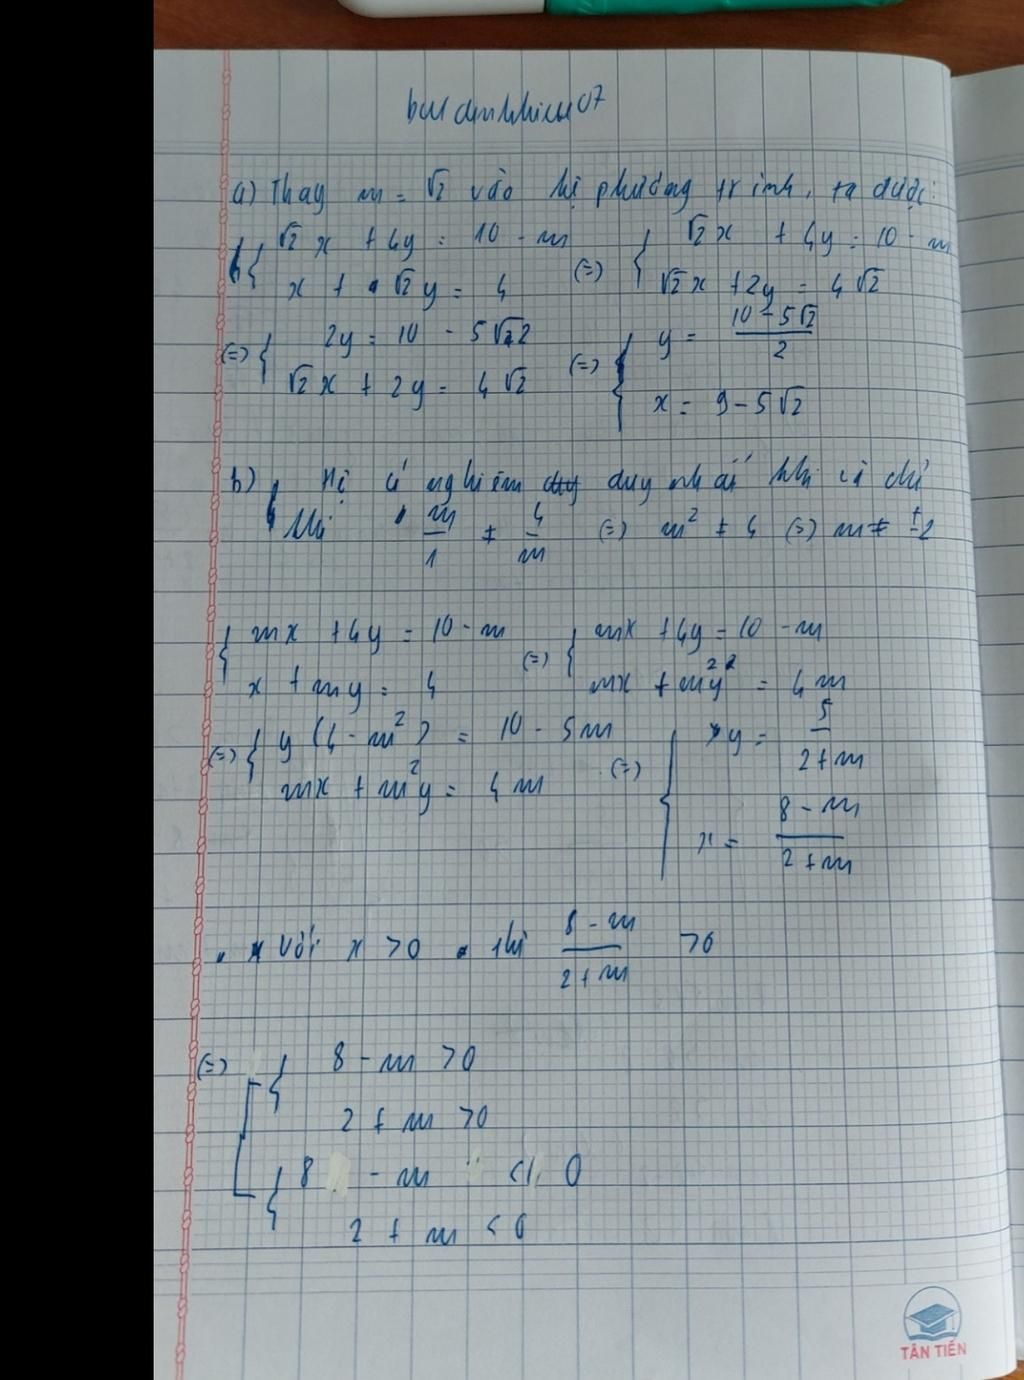 buidanhhieu07
a) Thay m = √2 vào hệ phương trình, ta được:
{ √2x + 4y = 10 - m (=) { √2x + 4y = 10 - m
x + √2y = 4 √2x + 2y = 4√2
(=) { 2y = 10 - 5√2 (=) { y = (10 - 5√2)/2
√2x + 2y = 4√2 x = 9 - 5√2
b) Hệ có nghiệm duy nhất khi và chỉ
khi m/1 ≠ 4/m (=) m² ≠ 4 (=) m ≠ ±2
{ mx + 4y = 10 - m (=) { mx + 4y = 10 - m
x + my = 4 mx + m²y = 4m
(=) { y(4 - m²) = 10 - 5m (=) { y = 5/(2 + m)
mx + m²y = 4m x = (8 - m)/(2 + m)
Với x > 0 thì (8 - m)/(2 + m) > 0
(=) [ { 8 - m > 0
2 + m > 0
{ 8 - m < 0
2 + m < 0
TÂN TIẾN